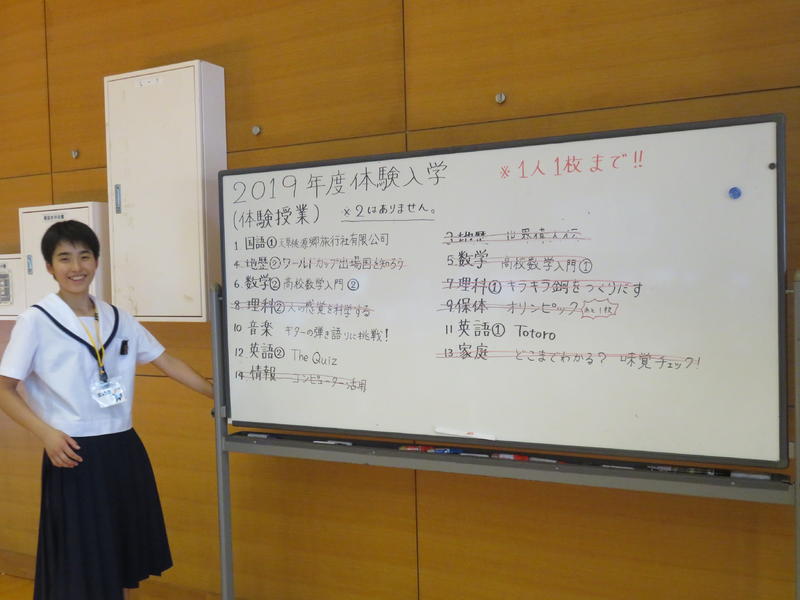 2019年度体験入学
※1人1枚まで!!
(体験授業) ※2はありません。
1 国語① 旅行社有限公司
3 地歴
4 地歴② ワールドカップ出場国を知ろう
5 数学 高校数学入門①
6 数学② 高校数学入門②
7 理科① キラキラ銅をつくりだす
8 理科② 人の感覚を科学する
9 保体 オリンピック あと1枚
10 音楽 ギターの弾き語りに挑戦!
11 英語① Totoro
12 英語② The Quiz
13 家庭 どこまでわかる? 味覚チェック!
14 情報 コンピューター活用